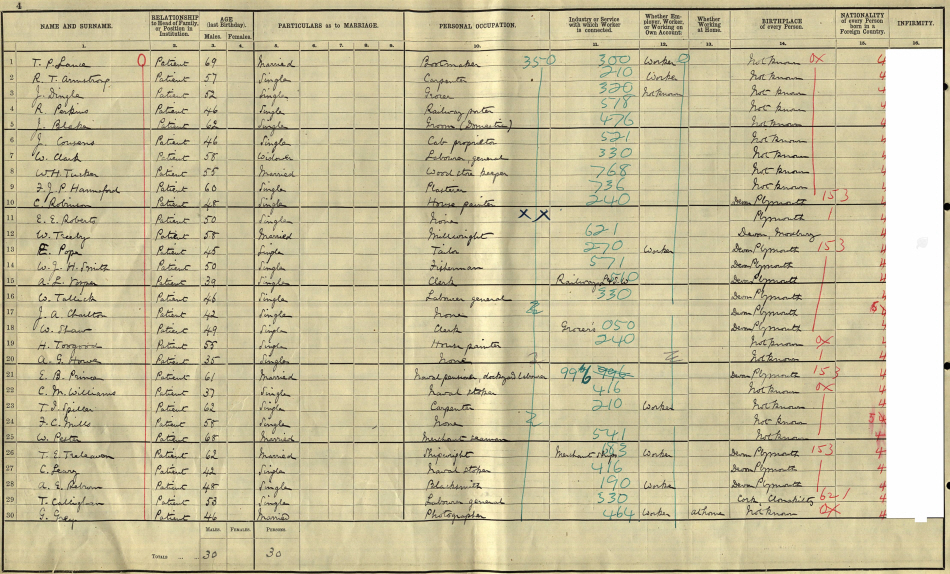 4
NAME AND SURNAME. RELATIONSHIP to Head of Family, or Position in Institution. AGE (last Birthday). PARTICULARS as to MARRIAGE. PERSONAL OCCUPATION. Industry or Service with which Worker is connected. Whether Employer, Worker, or Working on Own Account. Whether Working at Home. BIRTHPLACE of every Person. NATIONALITY of every Person born in a Foreign Country. INFIRMITY.
Males. Females.
1. 2. 3. 4. 5. 6. 7. 8. 9. 10. 11. 12. 13. 14. 15. 16.
1 T. P. Lance Patient 69 Married Bootmaker 350 300 Worker Not known OX 4
2 R. T. Armstrong Patient 57 Single Carpenter 210 Worker Not known 4
3 J. Dingle Patient 52 Single Grocer 320 Not known Not known 4
4 R. Perkins Patient 46 Single Railway porter 578 Not known 4
5 J. Blake Patient 62 Single Groom (Domestic) 476 Not known 4
6 J. Cousens Patient 46 Single Cab proprietor 521 Not known 4
7 W. Clark Patient 58 Widower Labourer, general 330 Not known 4
8 W. H. Tucker Patient 55 Married Wood store keeper 768 Not known 4
9 F. J. P. Hannaford Patient 60 Single Plasterer 736 Not known 4
10 C. Robinson Patient 48 Single House painter 240 Devon Plymouth 153 4
11 E. E. Roberts Patient 50 Single None X X Plymouth 4
12 W. Treeby Patient 58 Married Millwright 621 Devon, Modbury 4
13 E. Pope Patient 45 Single Tailor 270 Worker Devon Plymouth 153 4
14 W. J. H. Smith Patient 50 Single Fisherman 571 Devon Plymouth 4
15 A. L. Patient 39 Single Clerk Railway Devon Plymouth 4
16 W. Tallick Patient 46 Single Labourer general 330 Devon Plymouth 4
17 J. A. Charlton Patient 42 Single None Devon Plymouth
18 W. Shaw Patient 49 Single Clerk Grocer's 050 Devon Plymouth 4
19 H. Toogood Patient 55 Single House painter 240 Not known OX 4
20 A. G. Howe Patient 35 Single None Not known 4
21 E. B. Prince Patient 61 Married Naval pensioner, dockyard labourer 996 Devon Plymouth 153 4
22 C. M. Williams Patient 37 Single Naval stoker 416 Not known OX 4
23 T. J. Spiller Patient 62 Single Carpenter 210 Worker Not known 4
24 F. C. Mills Patient 58 Single None Not known
25 W. Patient 68 Married Merchant seaman 541 Not known 4
26 T. E. Treleaven Patient 62 Married Shipwright Merchant Worker Devon Plymouth 153 4
27 C. Leary Patient 42 Single Naval stoker 416 Devon Plymouth 4
28 A. E. Patient 48 Single Blacksmith 190 Worker Devon Plymouth 4
29 T. Callighan Patient 53 Single Labourer general 330 Cork, Clonakilty 621 4
30 G. Grey Patient 46 Married Photographer 464 Worker at home Not known OX 4
MALES. FEMALES. PERSONS.
TOTALS ... ... 30 30